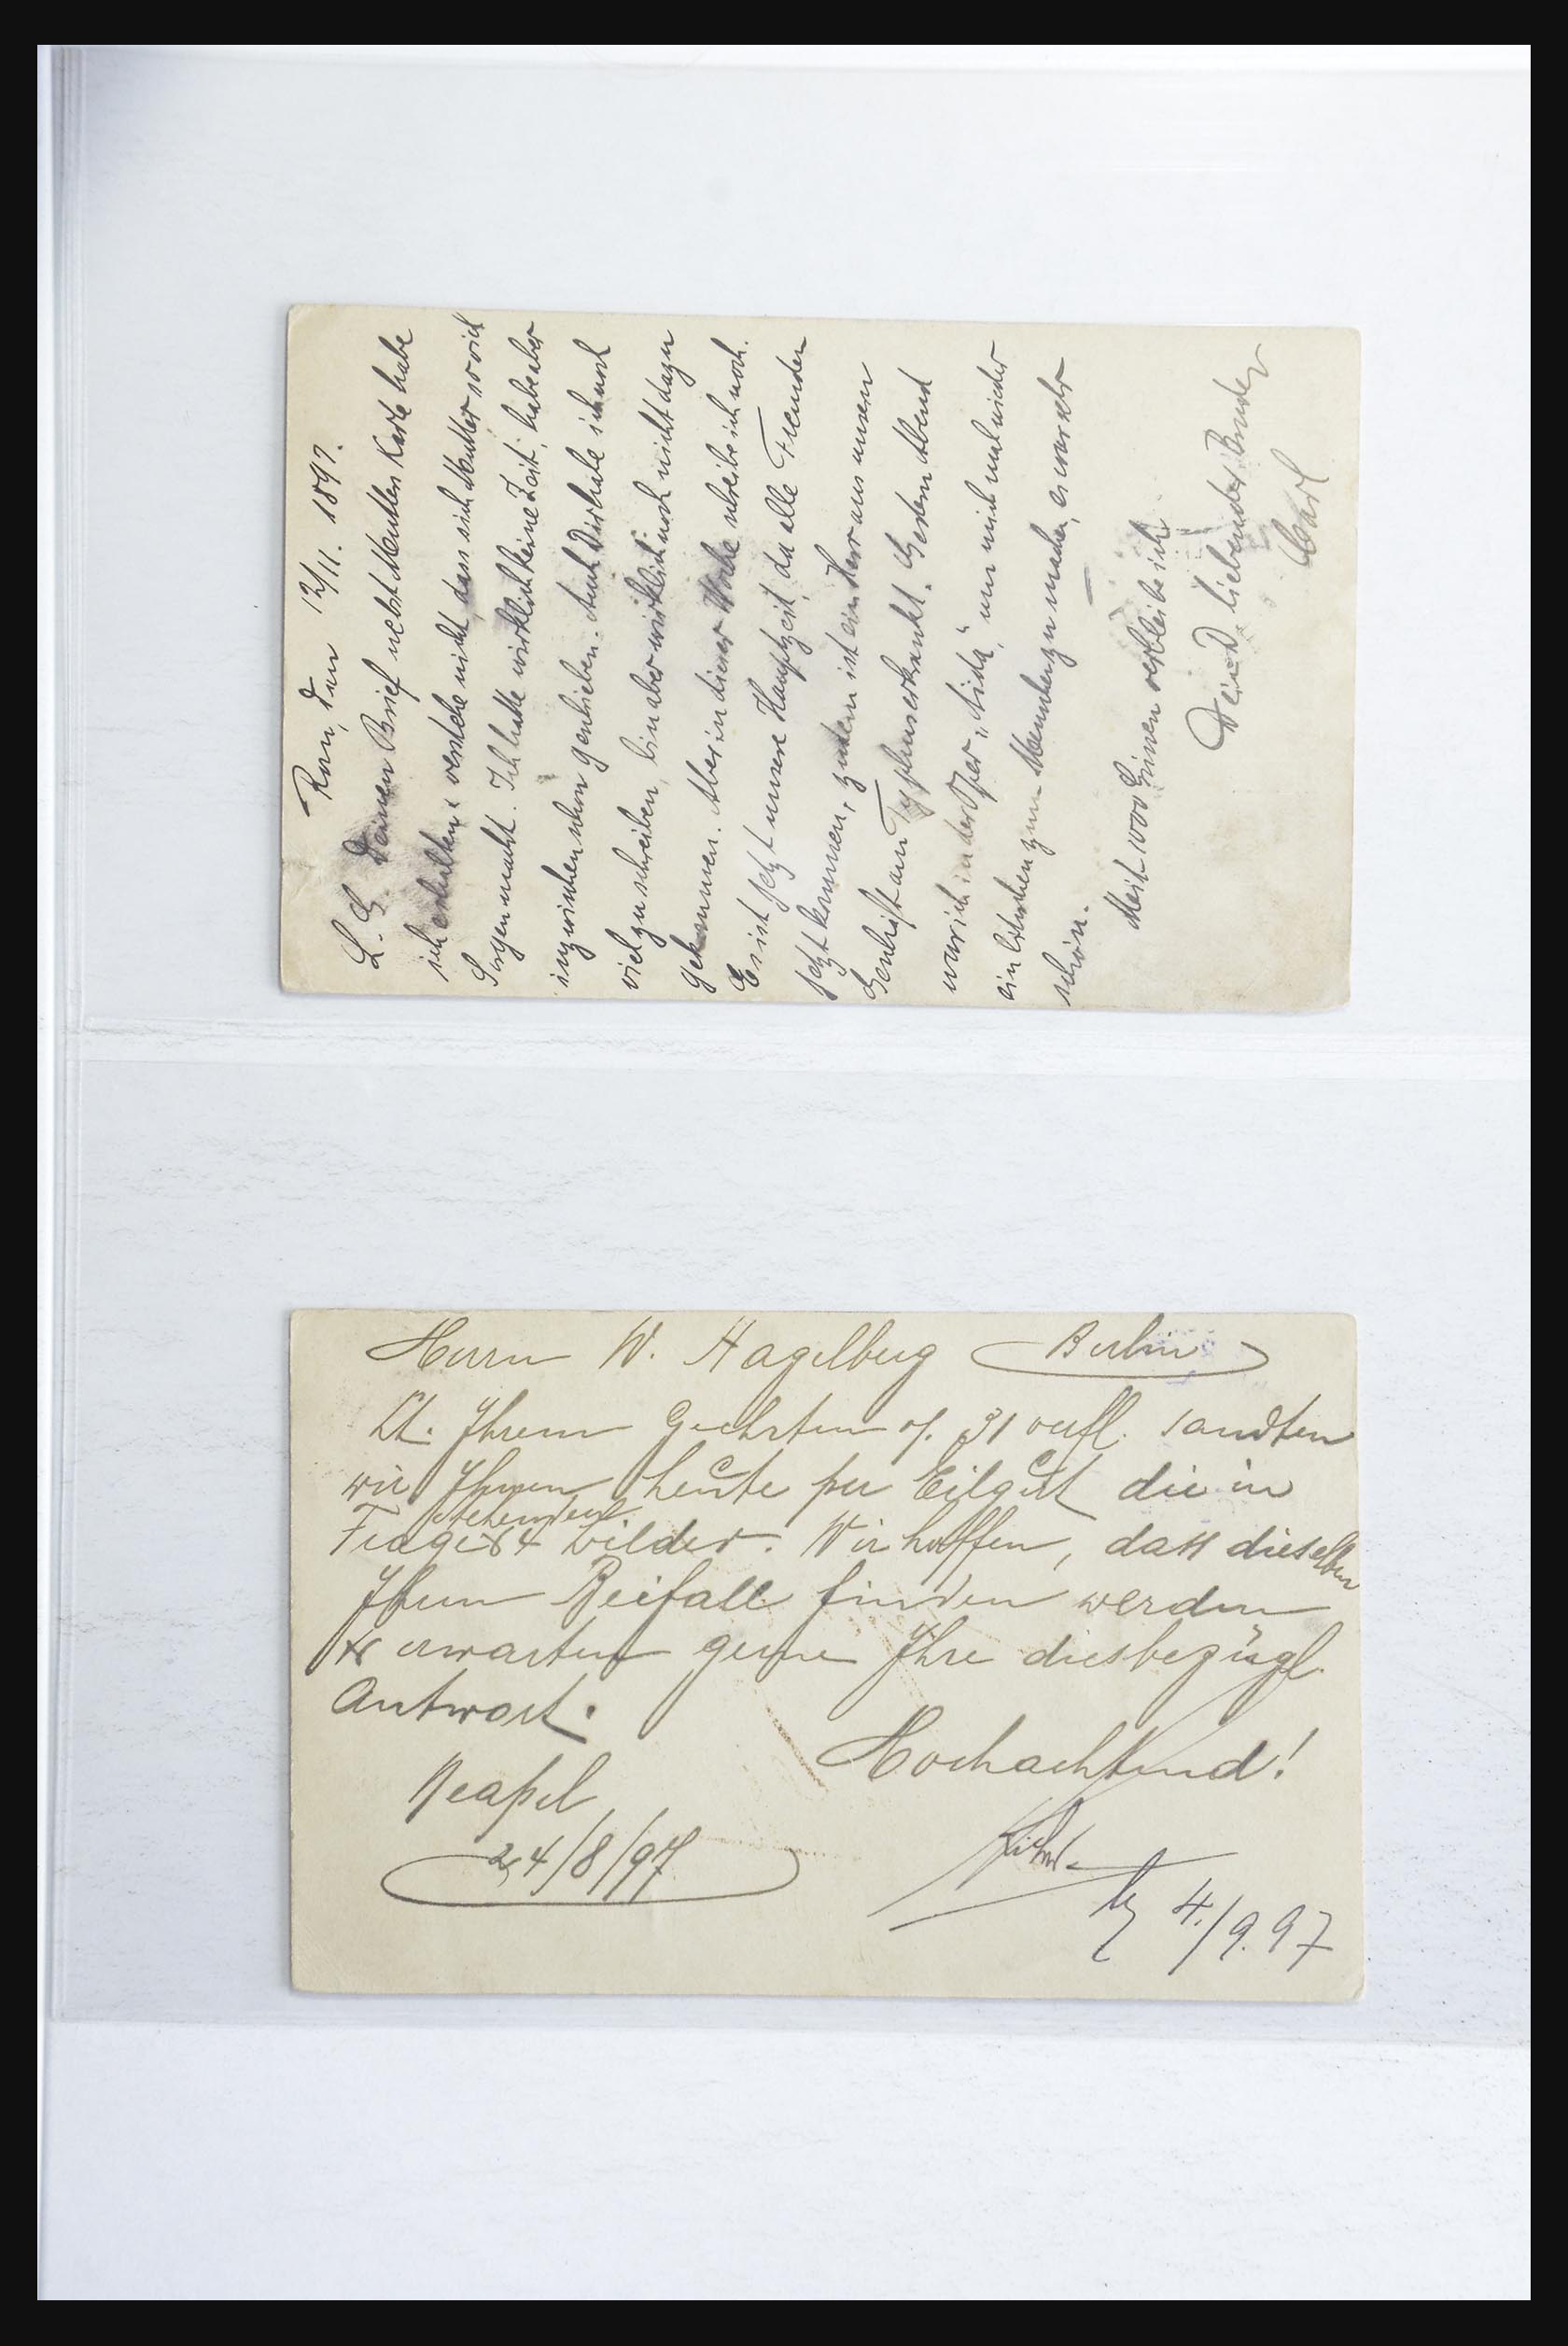 Rom, den 12/11. 1897.
L. G. Deinen Brief nebst Mutters Karte habe
ich erhalten, verstehe nicht, dass sich Mutter soviel
Sorgen macht. Ich hatte wirklich keine Zeit, habe aber
inzwischen schon geschrieben. Auch Dir habe ich noch
viel zu schreiben, bin aber wirklich noch nicht dazu
gekommen. Aber in dieser Woche schreibe ich noch.
Es ist jetzt unsere Hauptzeit, da alle Fremden
jetzt kommen, zudem ist ein Herr aus unserm
Geschäft am Typhus erkrankt. Gestern Abend
war ich in der Oper „Aida“, um mich mal wieder
ein bischen zum Menschen zu machen, es war sehr
schön.
Mit 1000 Grüssen verbleibe ich
Dein D. liebender Bruder
Carl
Herrn W. Hagelberg Berlin
Lt. Ihrem Geehrten v. 31 verfl. sandten
wir Ihnen heute per Eilgut die in
Frage stehenden 4 Bilder. Wir hoffen, dass dieselben
Ihren Beifall finden werden
& erwarten gerne Ihre diesbezügl.
Antwort.
Hochachtend!
Neapel
24/8/97
4./9.97